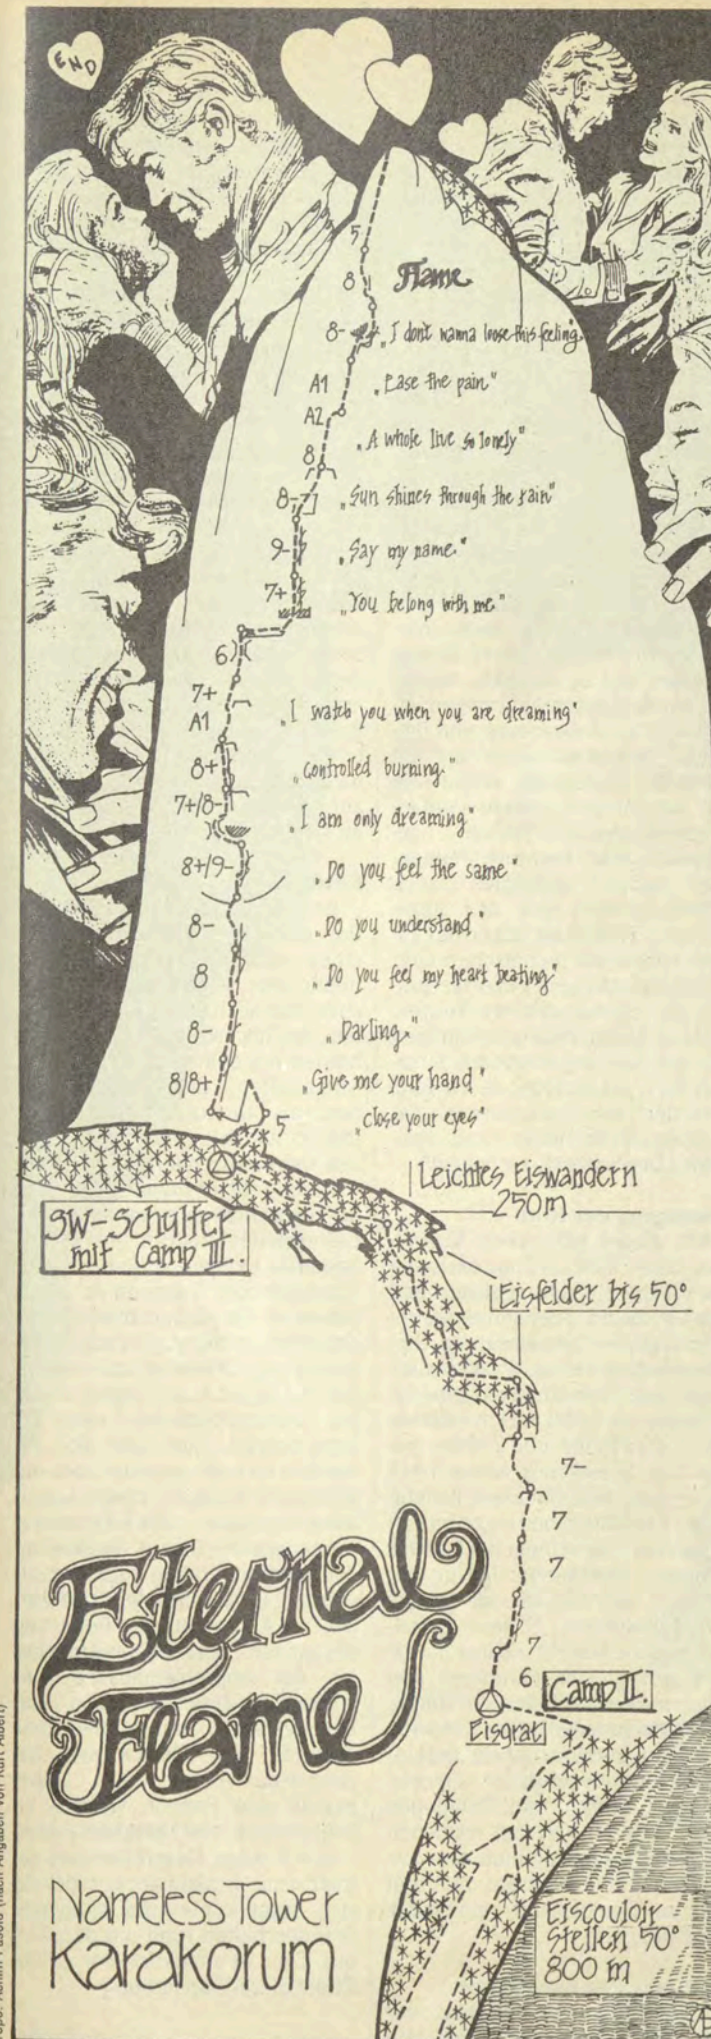 END
5
8
Flame
8- „I dont wanna loose this feeling"
A1 „Ease the pain"
A2
„A whole live so lonely"
8
8- „Sun shines through the rain"
9- „Say my name."
7+ „You belong with me"
6
7+
A1 „I watch you when you are dreaming"
8+ „Controlled burning."
7+/8- „I am only dreaming"
8+/9- „Do you feel the same"
8- „Do you understand"
8 „Do you feel my heart beating"
8- „Darling."
8/8+ „Give me your hand"
5 „close your eyes"
Leichtes Eiswandern
250m
SW-Schulter
mit Camp III.
Eisfelder bis 50°
7-
7
7
7
6
Camp II.
Eisgrat
Eternal
Flame
Nameless Tower
Karakorum
Eiscouloir
Stellen 50°
800 m
(nach Angaben von Kurt Albert)